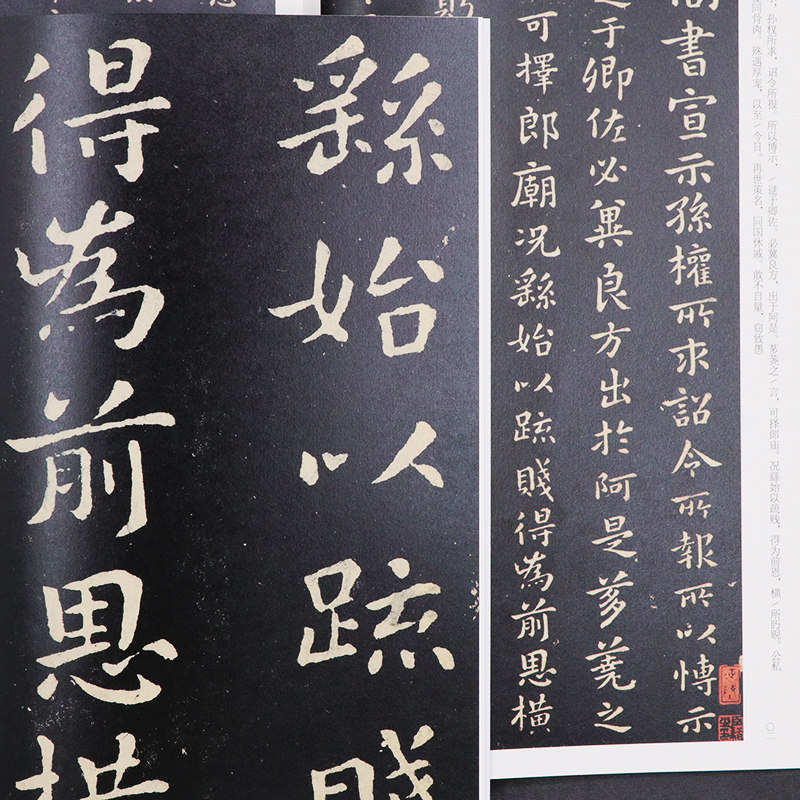 孙权所求，诏令所报，所以博示，／逮于卿佐。必冀良方，出于阿是。芻荛之／言，可择郎庙。况繇始以疏贱，得为前恩，横／所眄睨。公私
同骨肉。殊遇厚宠，以至／今日。再世策名，同国休戚。敢不自量，窃致愚
〇二
尚書宣示孫權所求詔令所報所以博示
于卿佐必冀良方出於阿是芻蕘之
可擇郎廟況繇始以疏賤得為前恩橫
繇始以疏賤
得為前恩橫